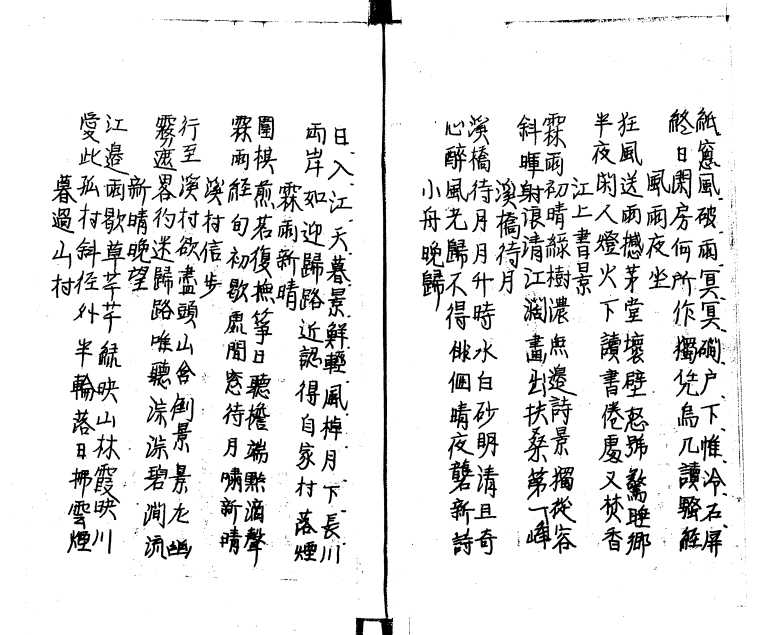 紙窓風破雨冥冥磵户下帷冷石屏
終日閑房何所作獨凭烏几讀騷經
風雨夜坐
狂風送雨撼茅堂壞壁怒號驚睡鄉
半夜閑人燈火下讀書倦處又焚香
江上書景
霖雨初晴綠樹濃無邊詩景獨從容
斜暉射浪清江濶畵出扶桑第一峰
溪橋待月
溪橋待月月升時水白砂明清且奇
心醉風光歸不得徘徊晴夜礱新詩
小舟晚歸
日入江天暮景鮮輕風棹月下長川
兩岸如迎歸路近認得自家村落煙
霖雨新晴
圍棋煎茗復撫箏日聽檐端點滴聲
霖雨經旬初歇處閒窓待月嘯新晴
溪村信步
行至溪村欲盡頭山舍倒景景尤幽
霧遮畧彴迷歸路唯聽淙淙碧澗流
新晴晚望
江邊雨歇草芊芊綠映山林霞映川
愛此孤村斜徑外半輪落日拂雲煙
暮過山村